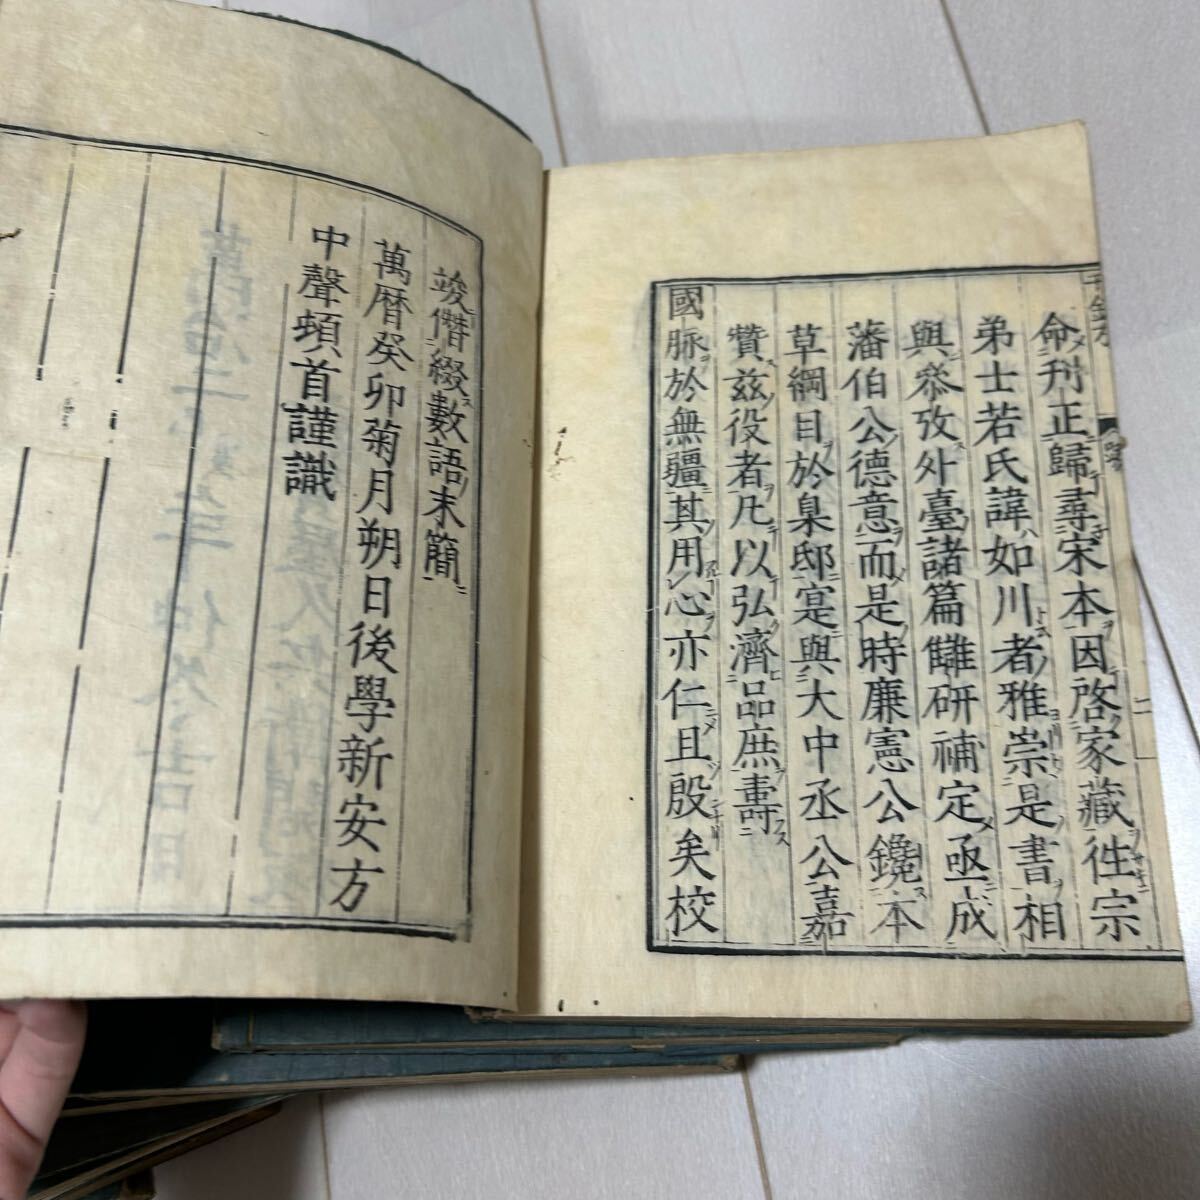 命刊正歸尋宋本因啓家藏徃宗
弟士若氏諱如川者雅崇是書相
與叅攷外臺諸篇讎研補定亟成
藩伯公德意而是時廉憲公鑱本
草綱目於臬邸寔與大中丞公嘉
贊兹役者凡以弘濟品庶壽
國脉於無疆其用心亦仁且殷矣校
竣僭綴數語末簡
萬曆癸卯菊月朔日後學新安方
中聲頓首謹識